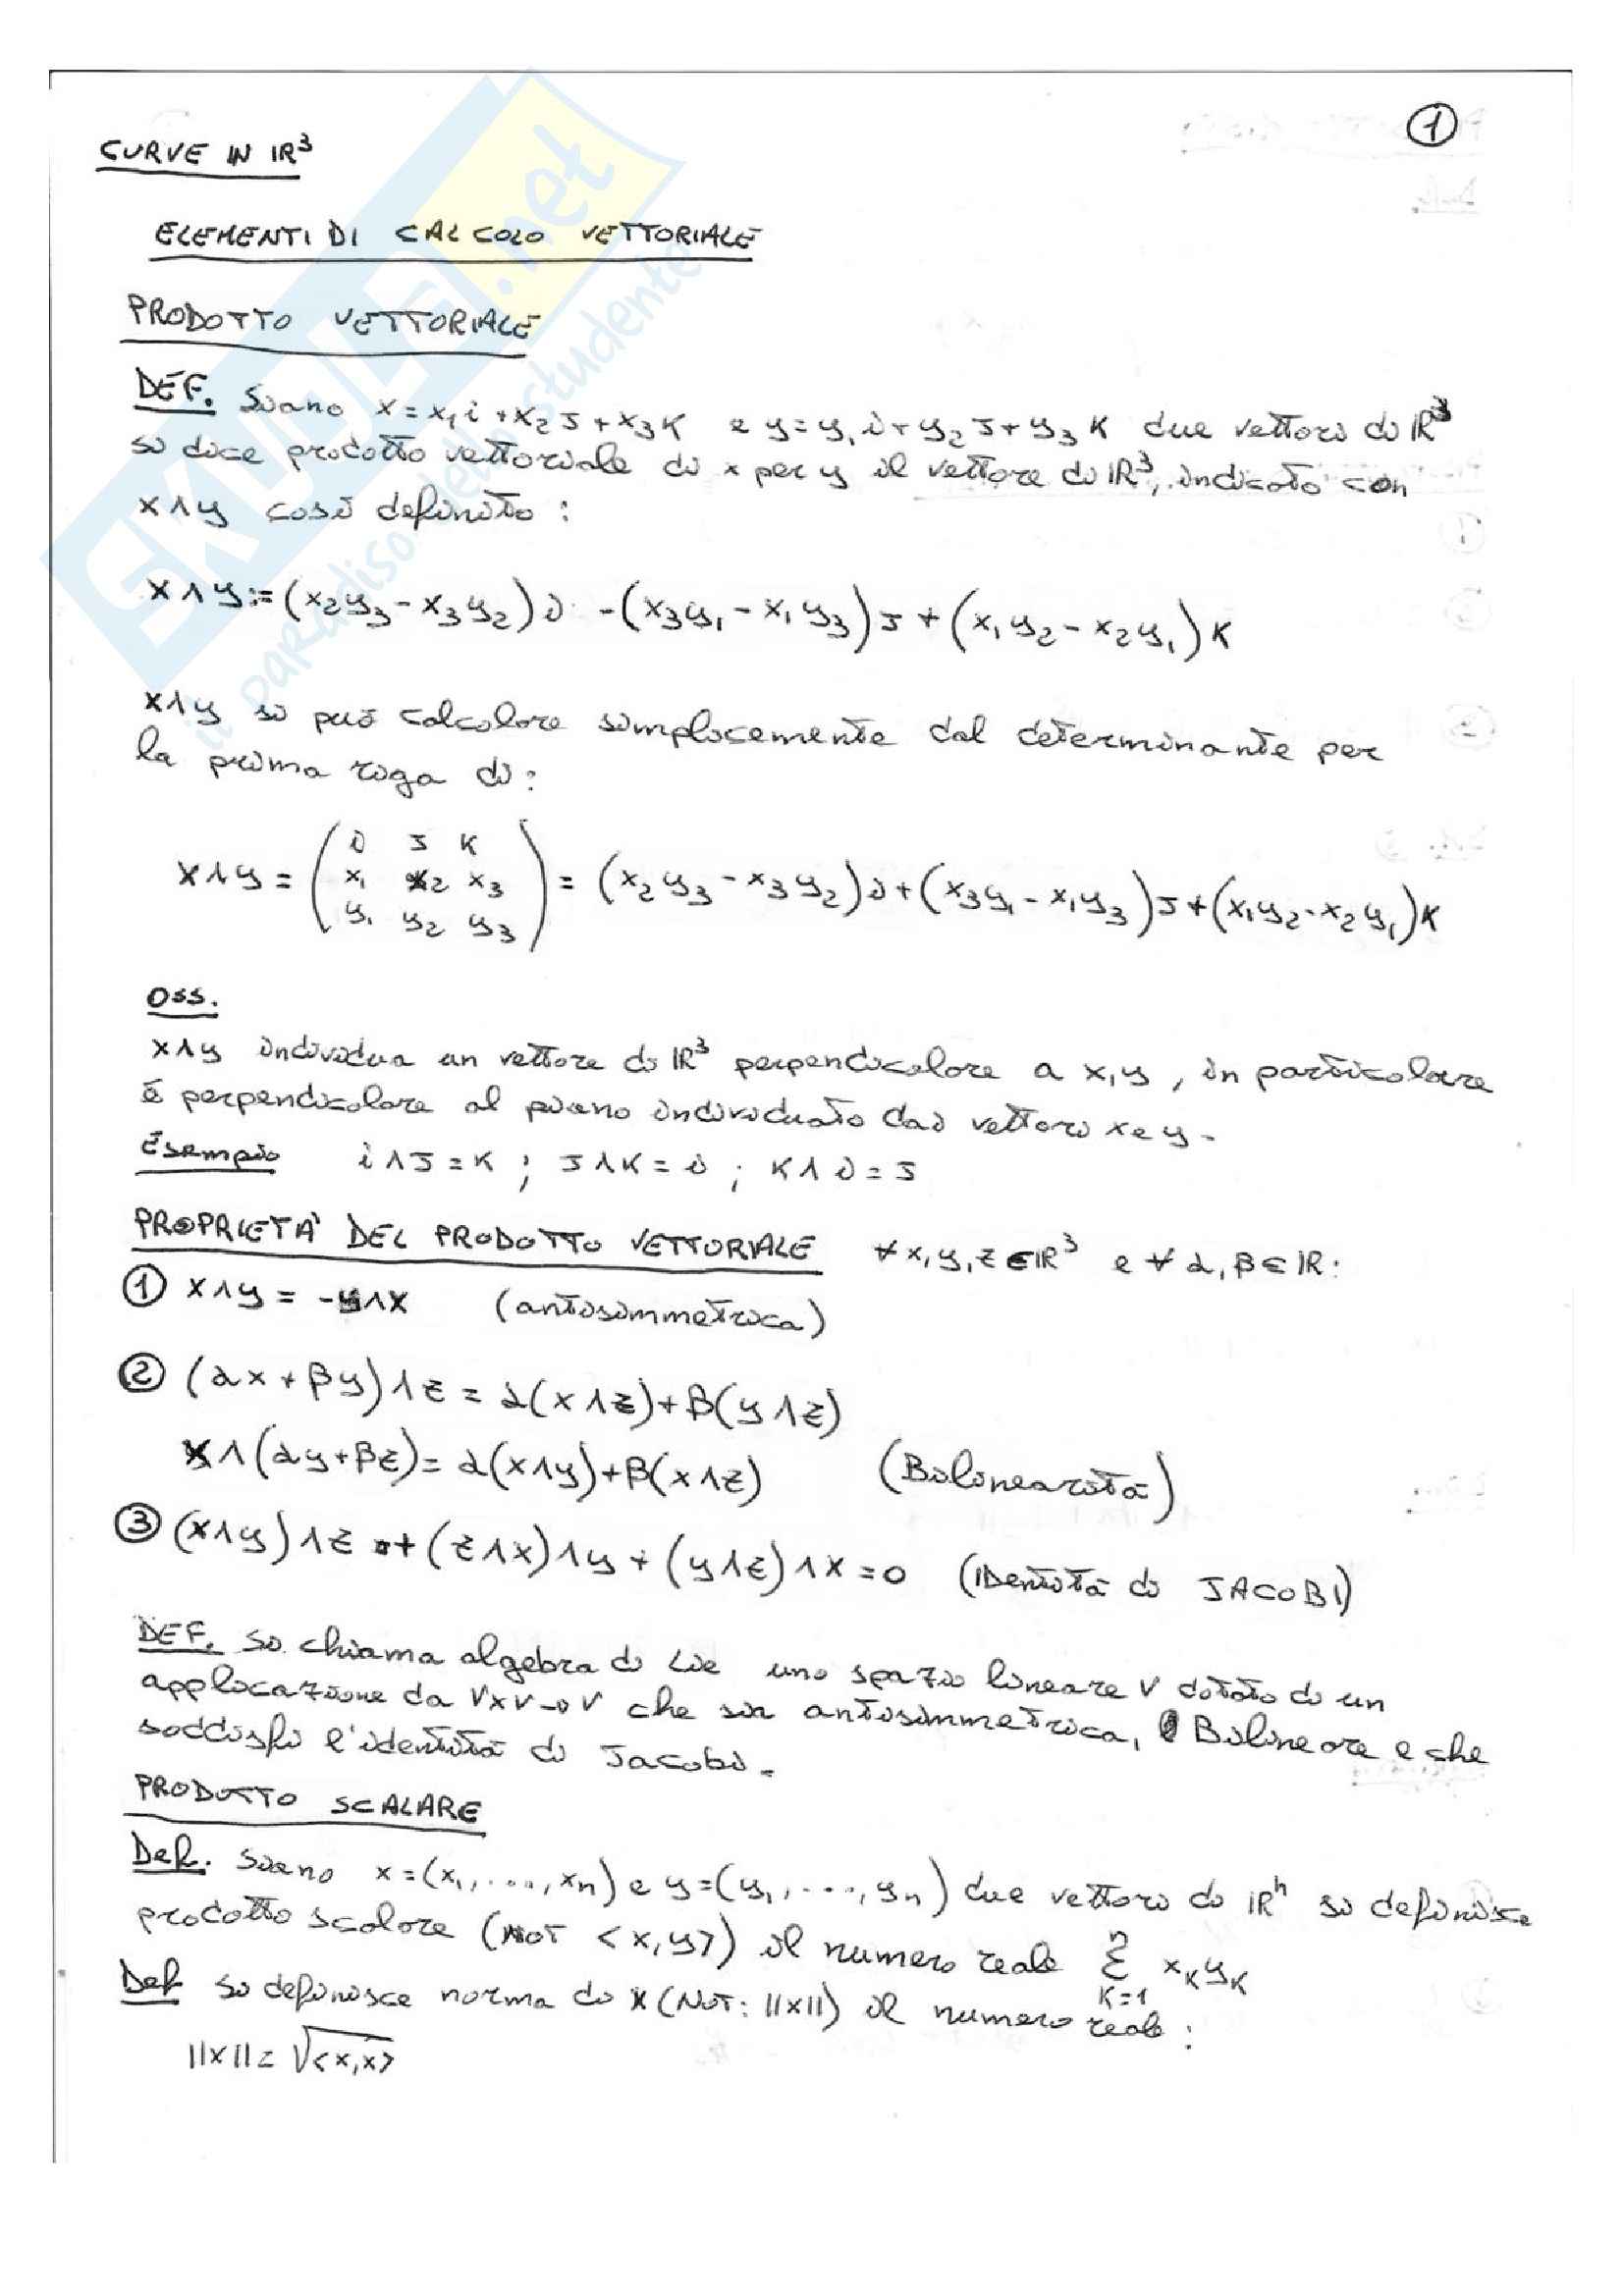 1
CURVE IN IR³
ELEMENTI DI CALCOLO VETTORIALE
PRODOTTO VETTORIALE
DEF. Siano x = x₁i + x₂J + x₃K e y = y₁i + y₂J + y₃K due vettori di IR³
si dice prodotto vettoriale di x per y il vettore di IR³, indicato con
x∧y così definito :
x∧y := (x₂y₃ - x₃y₂)i - (x₃y₁ - x₁y₃)J + (x₁y₂ - x₂y₁)K
x∧y si può calcolare semplicemente dal determinante per
la prima riga di :
i J K
x∧y = ( x₁ x₂ x₃ ) = (x₂y₃ - x₃y₂)i + (x₃y₁ - x₁y₃)J + (x₁y₂ - x₂y₁)K
y₁ y₂ y₃
OSS.
x∧y individua un vettore di IR³ perpendicolare a x,y , in particolare
è perpendicolare al piano individuato dai vettori x e y -
Esempio i∧J = K ; J∧K = i ; K∧i = J
PROPRIETA' DEL PRODOTTO VETTORIALE ∀ x,y,z ∈ IR³ e ∀ α,β ∈ IR :
① x∧y = -y∧x (antisimmetrica)
② (αx + βy)∧z = α(x∧z) + β(y∧z)
x∧(αy + βz) = α(x∧y) + β(x∧z) (Bilinearità)
③ (x∧y)∧z + (z∧x)∧y + (y∧z)∧x = 0 (IDentità di JACOBI)
DEF. Si chiama algebra di Lie uno spazio lineare V dotato di un
applicazione da V×V→V che sia antisimmetrica, Bilineare e che
soddisfi l'identità di Jacobi.
PRODOTTO SCALARE
Def. Siano x = (x₁, ..., xₙ) e y = (y₁, ..., yₙ) due vettori di IRⁿ si definisce
prodotto scalare (NOT <x,y>) il numero reale Σⁿ K=1 xₖyₖ
Def si definisce norma di x (NOT: ||x||) il numero reale :
||x|| = √<x,x>
SKUOLA.net
il paradiso dello studente